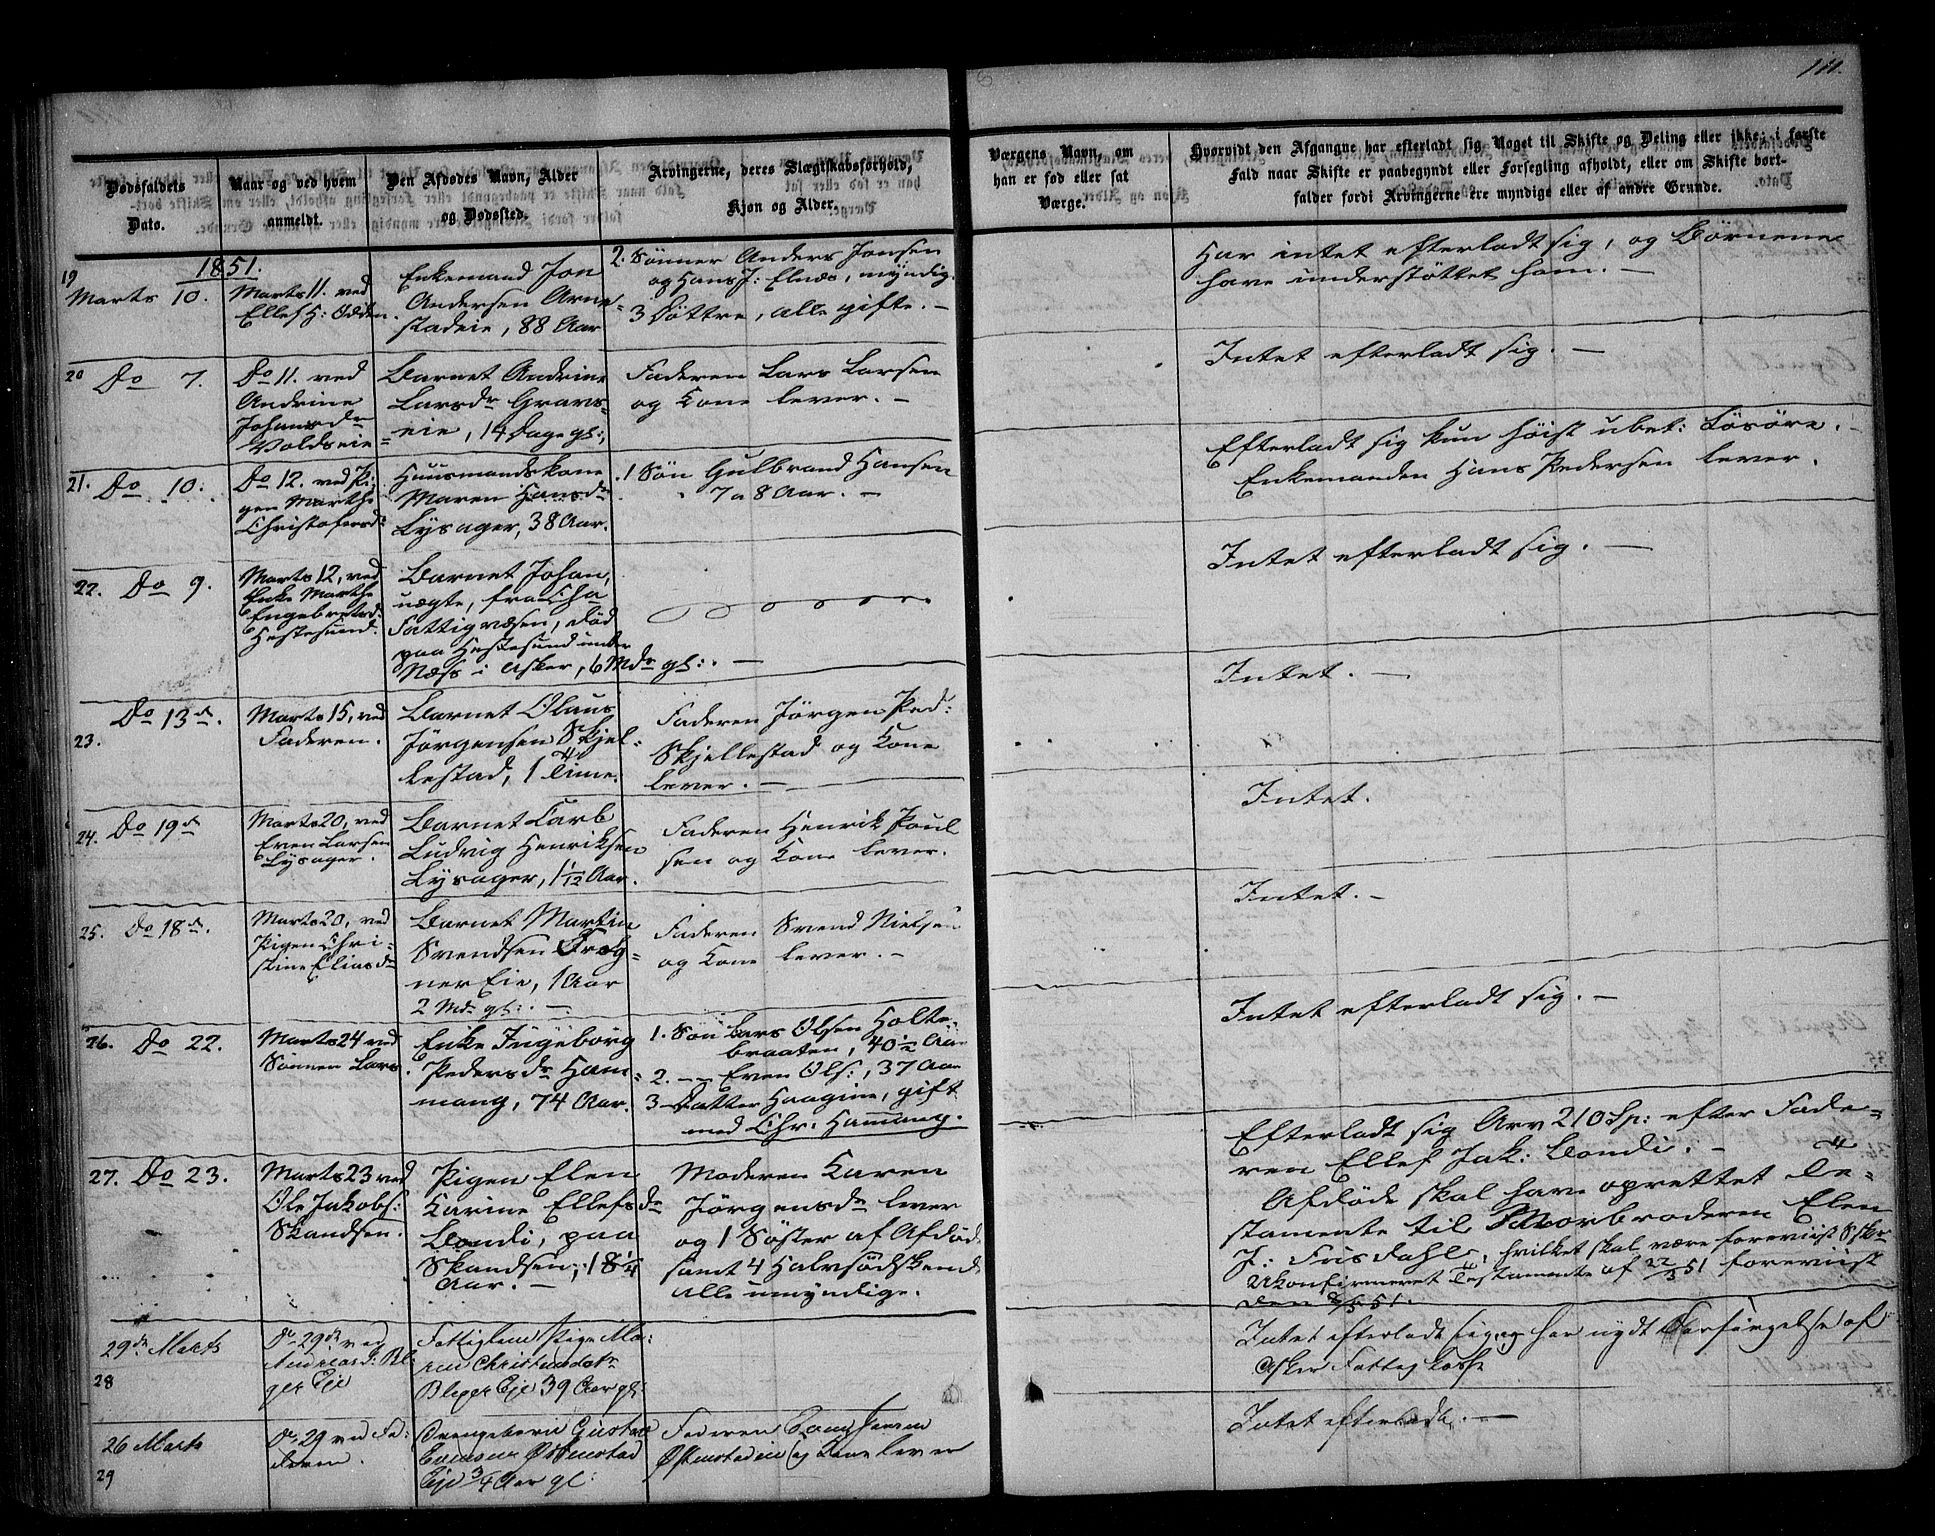 111.
Dødsfaldets
Dato.
Naar og ved hvem
anmeldt.
Den Afdødes Navn, Alder
og Dødssted.
Arvingerne, deres Slægtskabsforhold,
Kjøn og Alder.
Værgens Navn, om
han er fød eller sat
Værge.
Hvorvidt den Afgangne har efterladt sig Noget til Skifte og Deling eller ikke; i første
Fald naar Skifte er paabegyndt eller Forsegling afholdt, eller om Skifte bort-
falder fordi Arvingerne ere myndige eller af andre Grunde.
1851.
19
Marts 10.
Marts 11. ved
Ellef H: Odden.
Enkemand Jon
Andersen Arne-
stadeie, 88 Aar
2. Sønner Anders Jonsen
og Hans J: Elnæs, myndig.
3 Døttre, alle gifte. –
Har intet efterladt sig, og Børnene
have understøttet ham. –
20
Do 7.
Do 11. ved
Andrine
Johansdr
Voldseie
Barnet Andrine
Larsdr Gravs-
eie, 14 Dage gl:,
Faderen Lars Larsen
og Kone lever. –
Intet efterladt sig. –
21.
Do 10.
Do 12. ved Pi-
gen Marthe
Christofersd:
Huusmandskone
Maren Hansdr
Lysager, 38 Aar.
1 Søn Gulbrand Hansen
7 a 8 Aar. –
Efterladt sig kun høist ubet: Løsøre. –
Enkemanden Hans Pedersen lever.
22.
Do 9.
Marts 12, ved
Enke Marthe
Engebretsd:
Hestesund.
Barnet Johan,
uægte, fra Cha
Fattigvæsen, død
paa Hestesund under
Næss i Asker, 6 Mdr gl:. –
Intet efterladt sig. –
23.
Do 13de.
Marts 15, ved
Faderen.
Barnet Olaus
Jørgensen Skjel-
lestad, 1 Time.
Faderen Jørgen Ped:
Skjellestad og Kone
lever. –
Intet. –
24.
Do 19de
Marts 20, ved
Even Larsen
Lysager.
Barnet Carl
Ludvig Henriksen
Lysager, 1 1/12 Aar.
Faderen Henrik Poul
sen og Kone lever.
Intet.
25.
Do 18de.
Marts 20, ved
Pigen Chri-
stine Eliasdr
Barnet Martin
Svendsen Drøg-
ner Eie, 1 Aar
2 Mdr gl:. –
Faderen Svend Nielsen
og Kone lever. –
Intet. –
26.
Do 22.
Marts 24 ved
Sønnen Lars.
Enke Ingeborg
Pedersdr Ham-
mang, 74 Aar.
1. Søn Lars Olsen Holte-
braaten, 40 1/2 Aar
2. – – Even Ols:, 37 Aar
3 Datter Haagine, gift
med Chr. Hammang.
Intet efterladt sig. –
27.
Do 23.
Marts 23 ved
Ole Jakobs:
Skandsen.
Pigen Elen
Karine Ellefsdr
Bondi, paa
Skandsen, 18 1/4
Aar. –
Moderen Karen
Jørgensdr lever
og 1 Søster af Afdød.
samt 4 Halvsødskend
alle umyndige.
Efterladt sig Arv 210 Sp: efter Fade-
ren Ellef Jak: Bondi. –
Afdøde skal have oprettet Te-
stamente til Morbroderen Elen
J: Fusdahl, hvilket skal være foreviist Sskr
Ukonfirmeret Testamente af 22/3 51 foreviist
den 8/5 51.
29de Marts
28
Do 29de ved
Andreas J: Bl:
ger Eje
Fattiglem Pige Ma-
ren Christensdtr
Bleger Eje 39 Aar gl:
Intet efterladt sig og har nydt Forsørgelse af
Asker Fattigkasse
26 Marts
29
Do 29 ved Fa-
deren.
Drengebarn Gustav
Ø̶stenstad
Eje 3/4 Aar gl:
Faderen
Østenstadeie og Kone lever
Intet efterladt. –